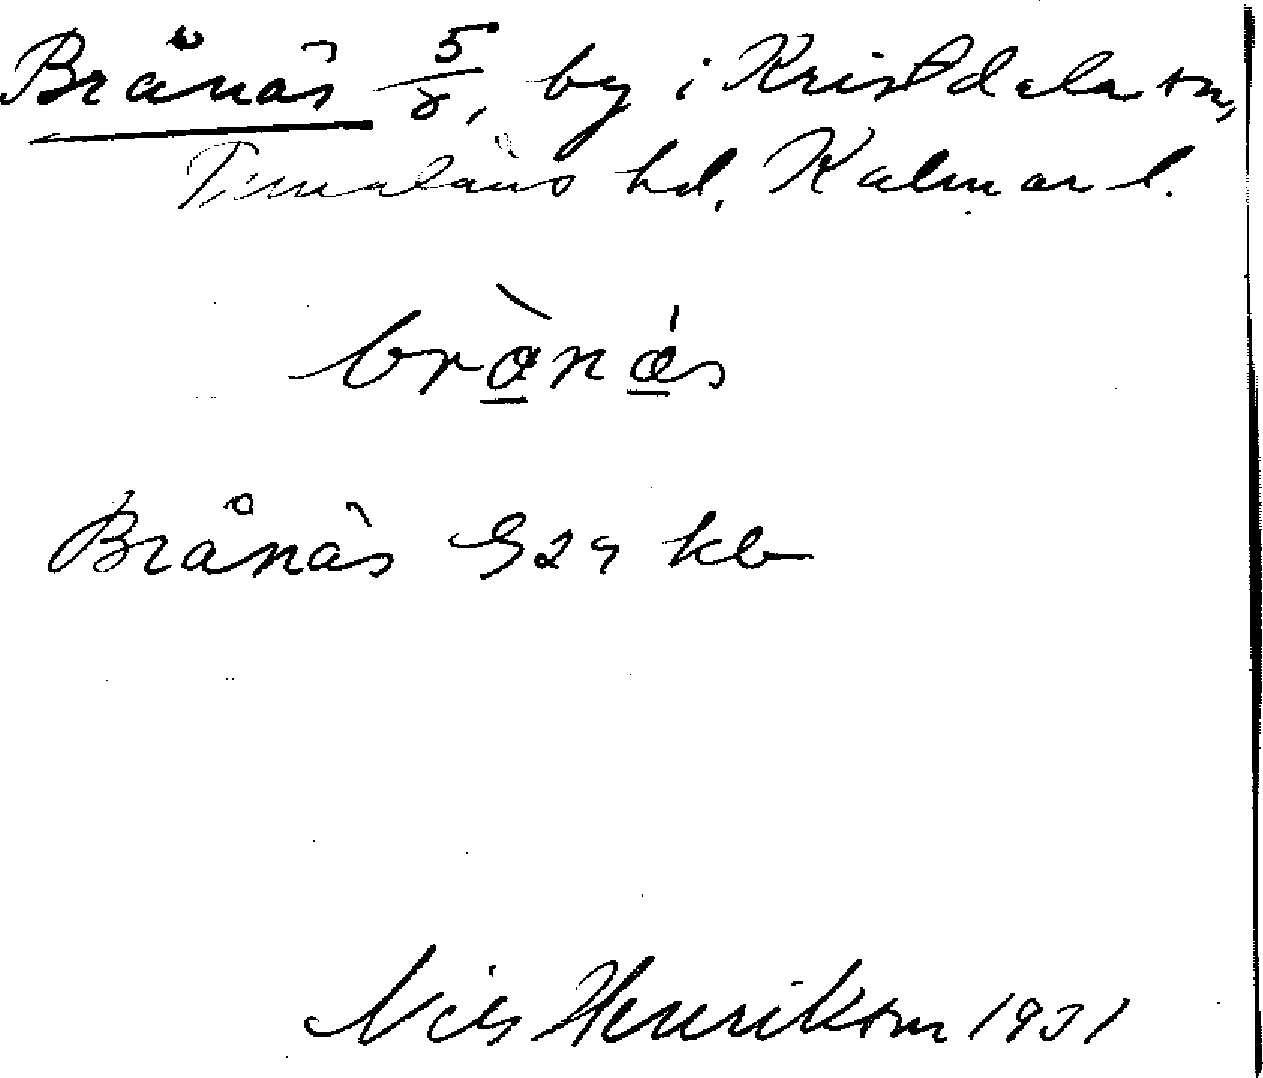 Brånäs 5/8, by i Kristdala sn,
Tunaläns hd, Kalmar l.
Brånäs
Nils Henrikson 1931